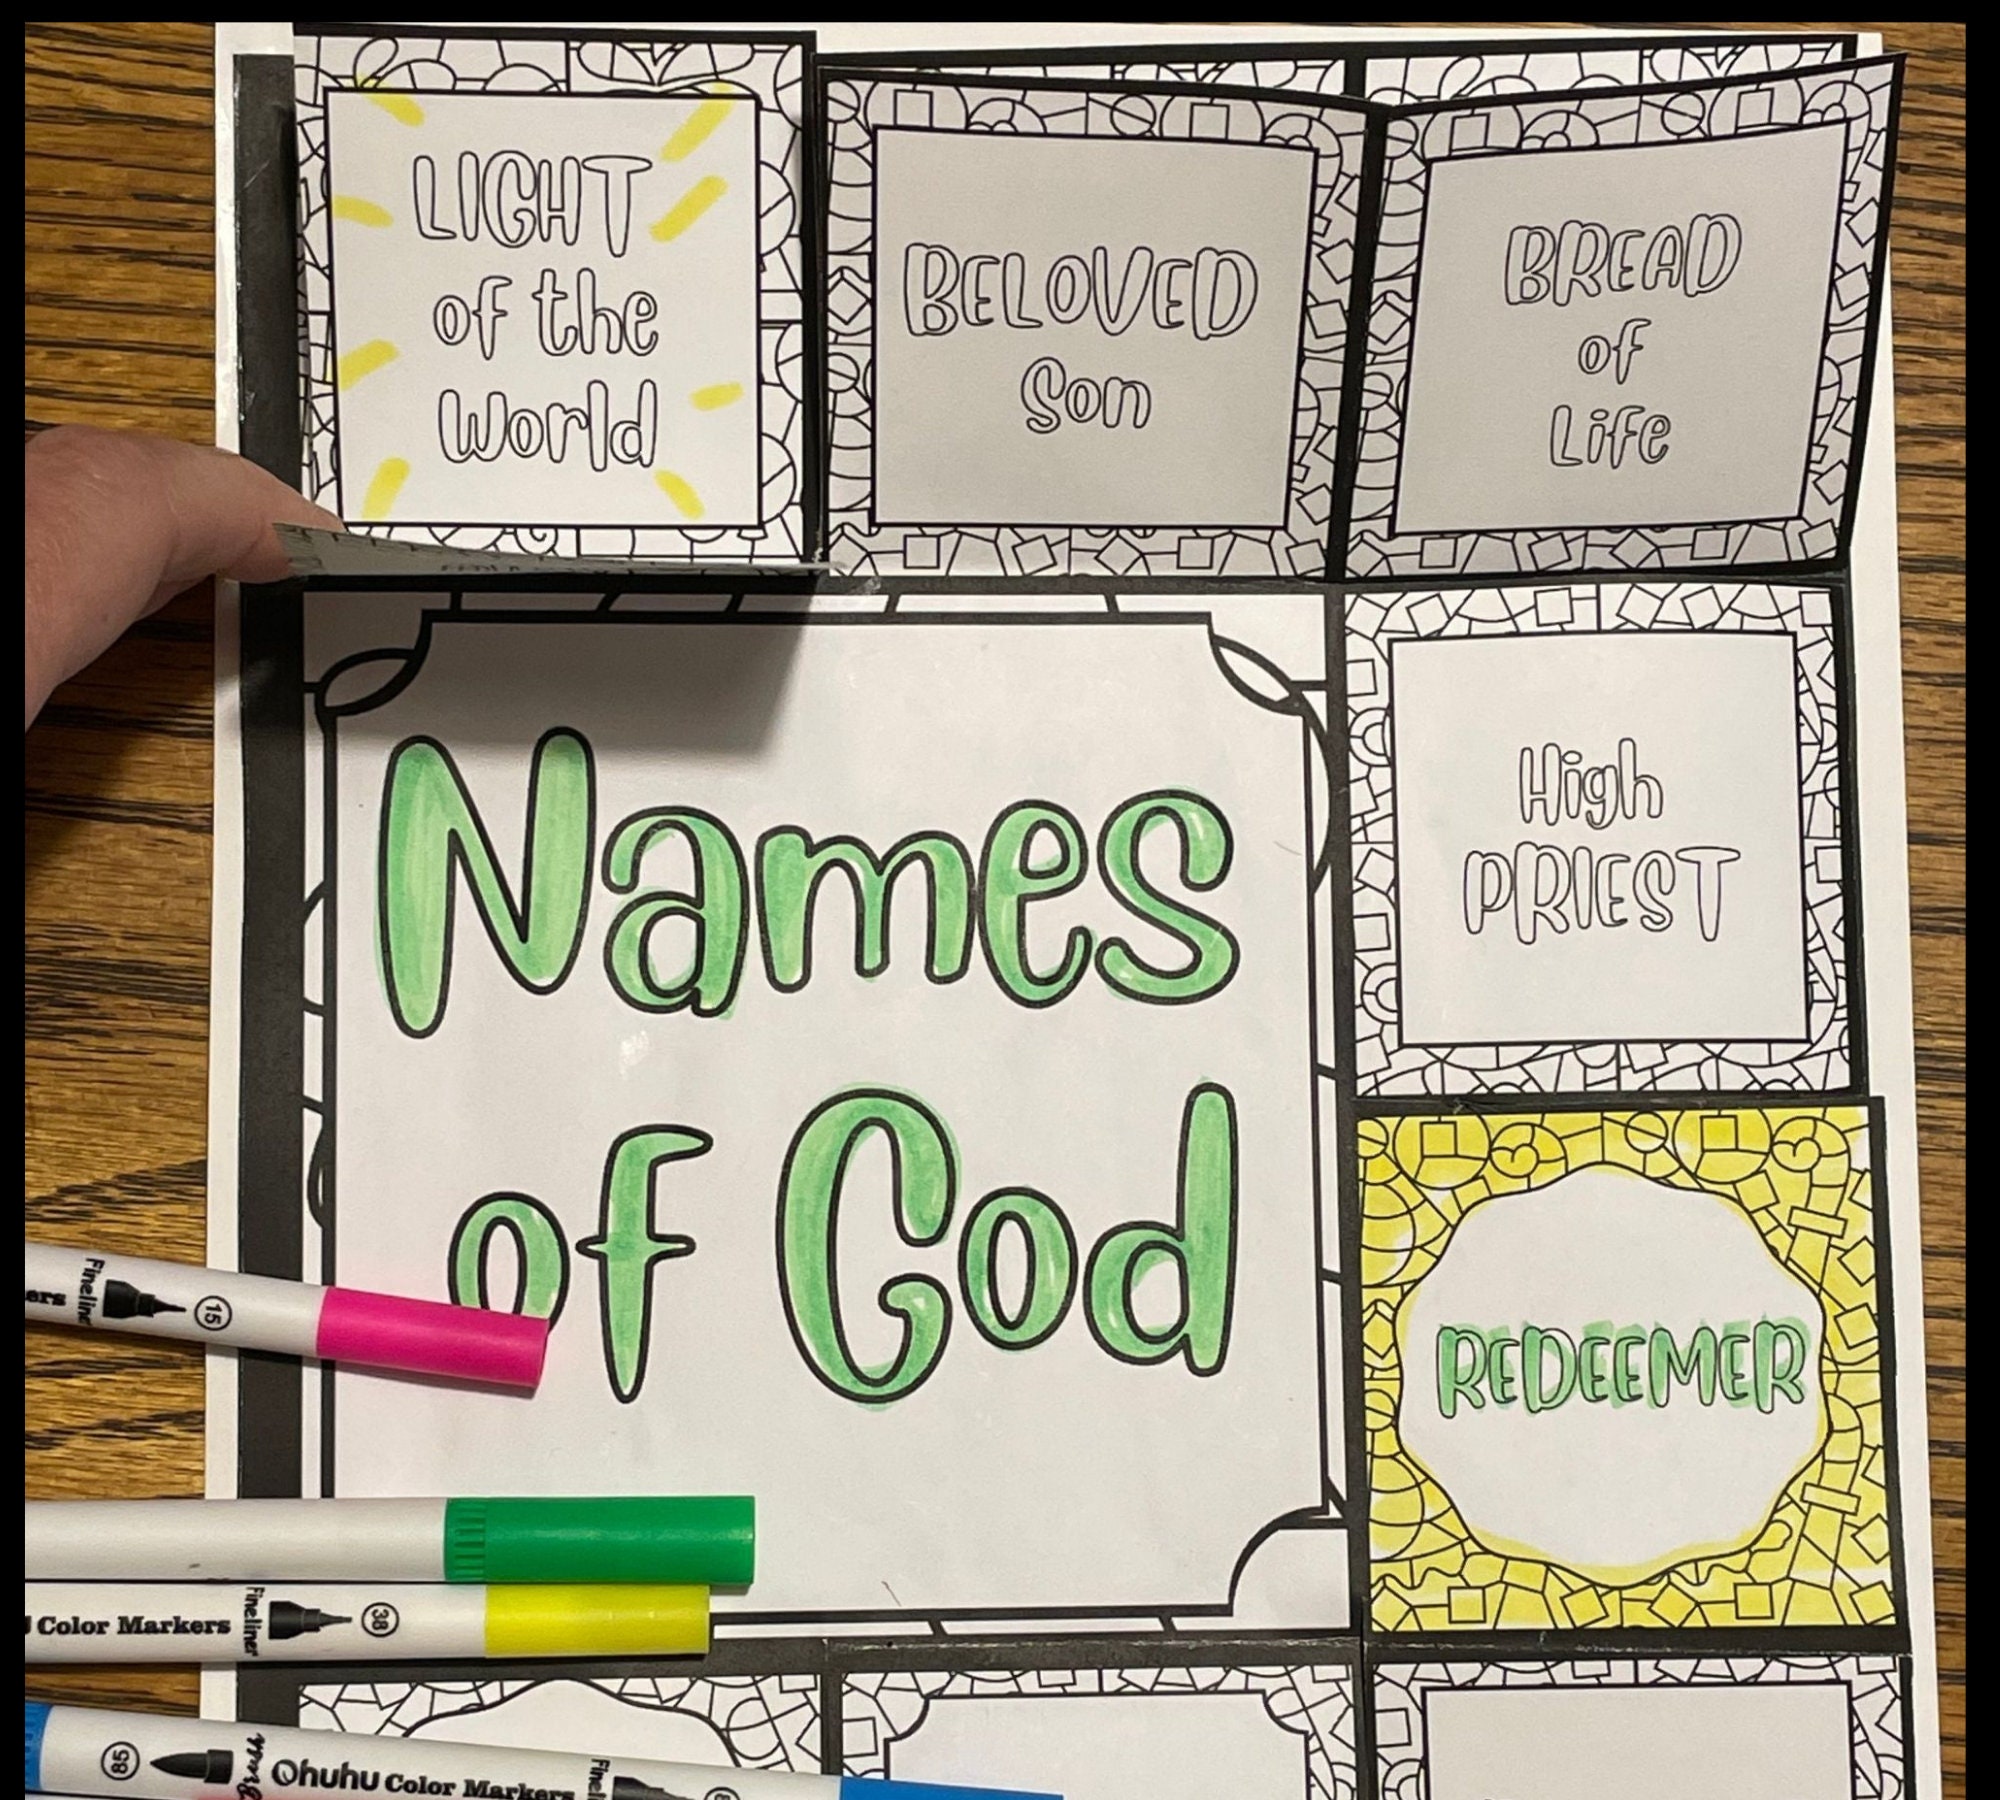 LIGHT
of the
World
BELOVED
Son
BREAD
of
Life
Names
of God
High
PRIEST
REDEEMER
ers Fineliner 15
Color Markers Fineliner 38
85 Ohuhu Color Markers